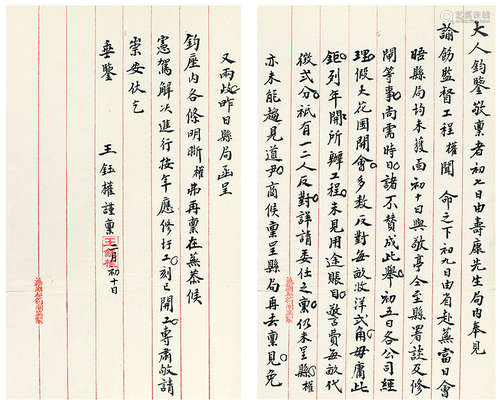 大人鈞鑒敬稟者初七日由壽康先生局內奉見
諭飭監督工程權聞 命之下初九日由省赴蕪當日會
晤縣局均未接函初十日與敬亭全至縣署談及修
閘等事尚需時日諸不贊成此舉初五日各公司經
理假大花園開會多数反對每畝收洋弍角毋庸此
鉅列年開所辦工程未見用途賬目警費每畝代
徵弍分祇有一二人反對詳請委任之稟仍未呈縣權
亦未能趨見道尹商候稟呈縣局再去稟見免
又兩歧昨日縣局函呈
鈞座內各條明晰權弗再稟在蕪恭候
憲駕解決進行按年應修圩工刻已開工專肅敬請
崇安伏乞
垂鑒 王鈺權謹稟 二月初十日